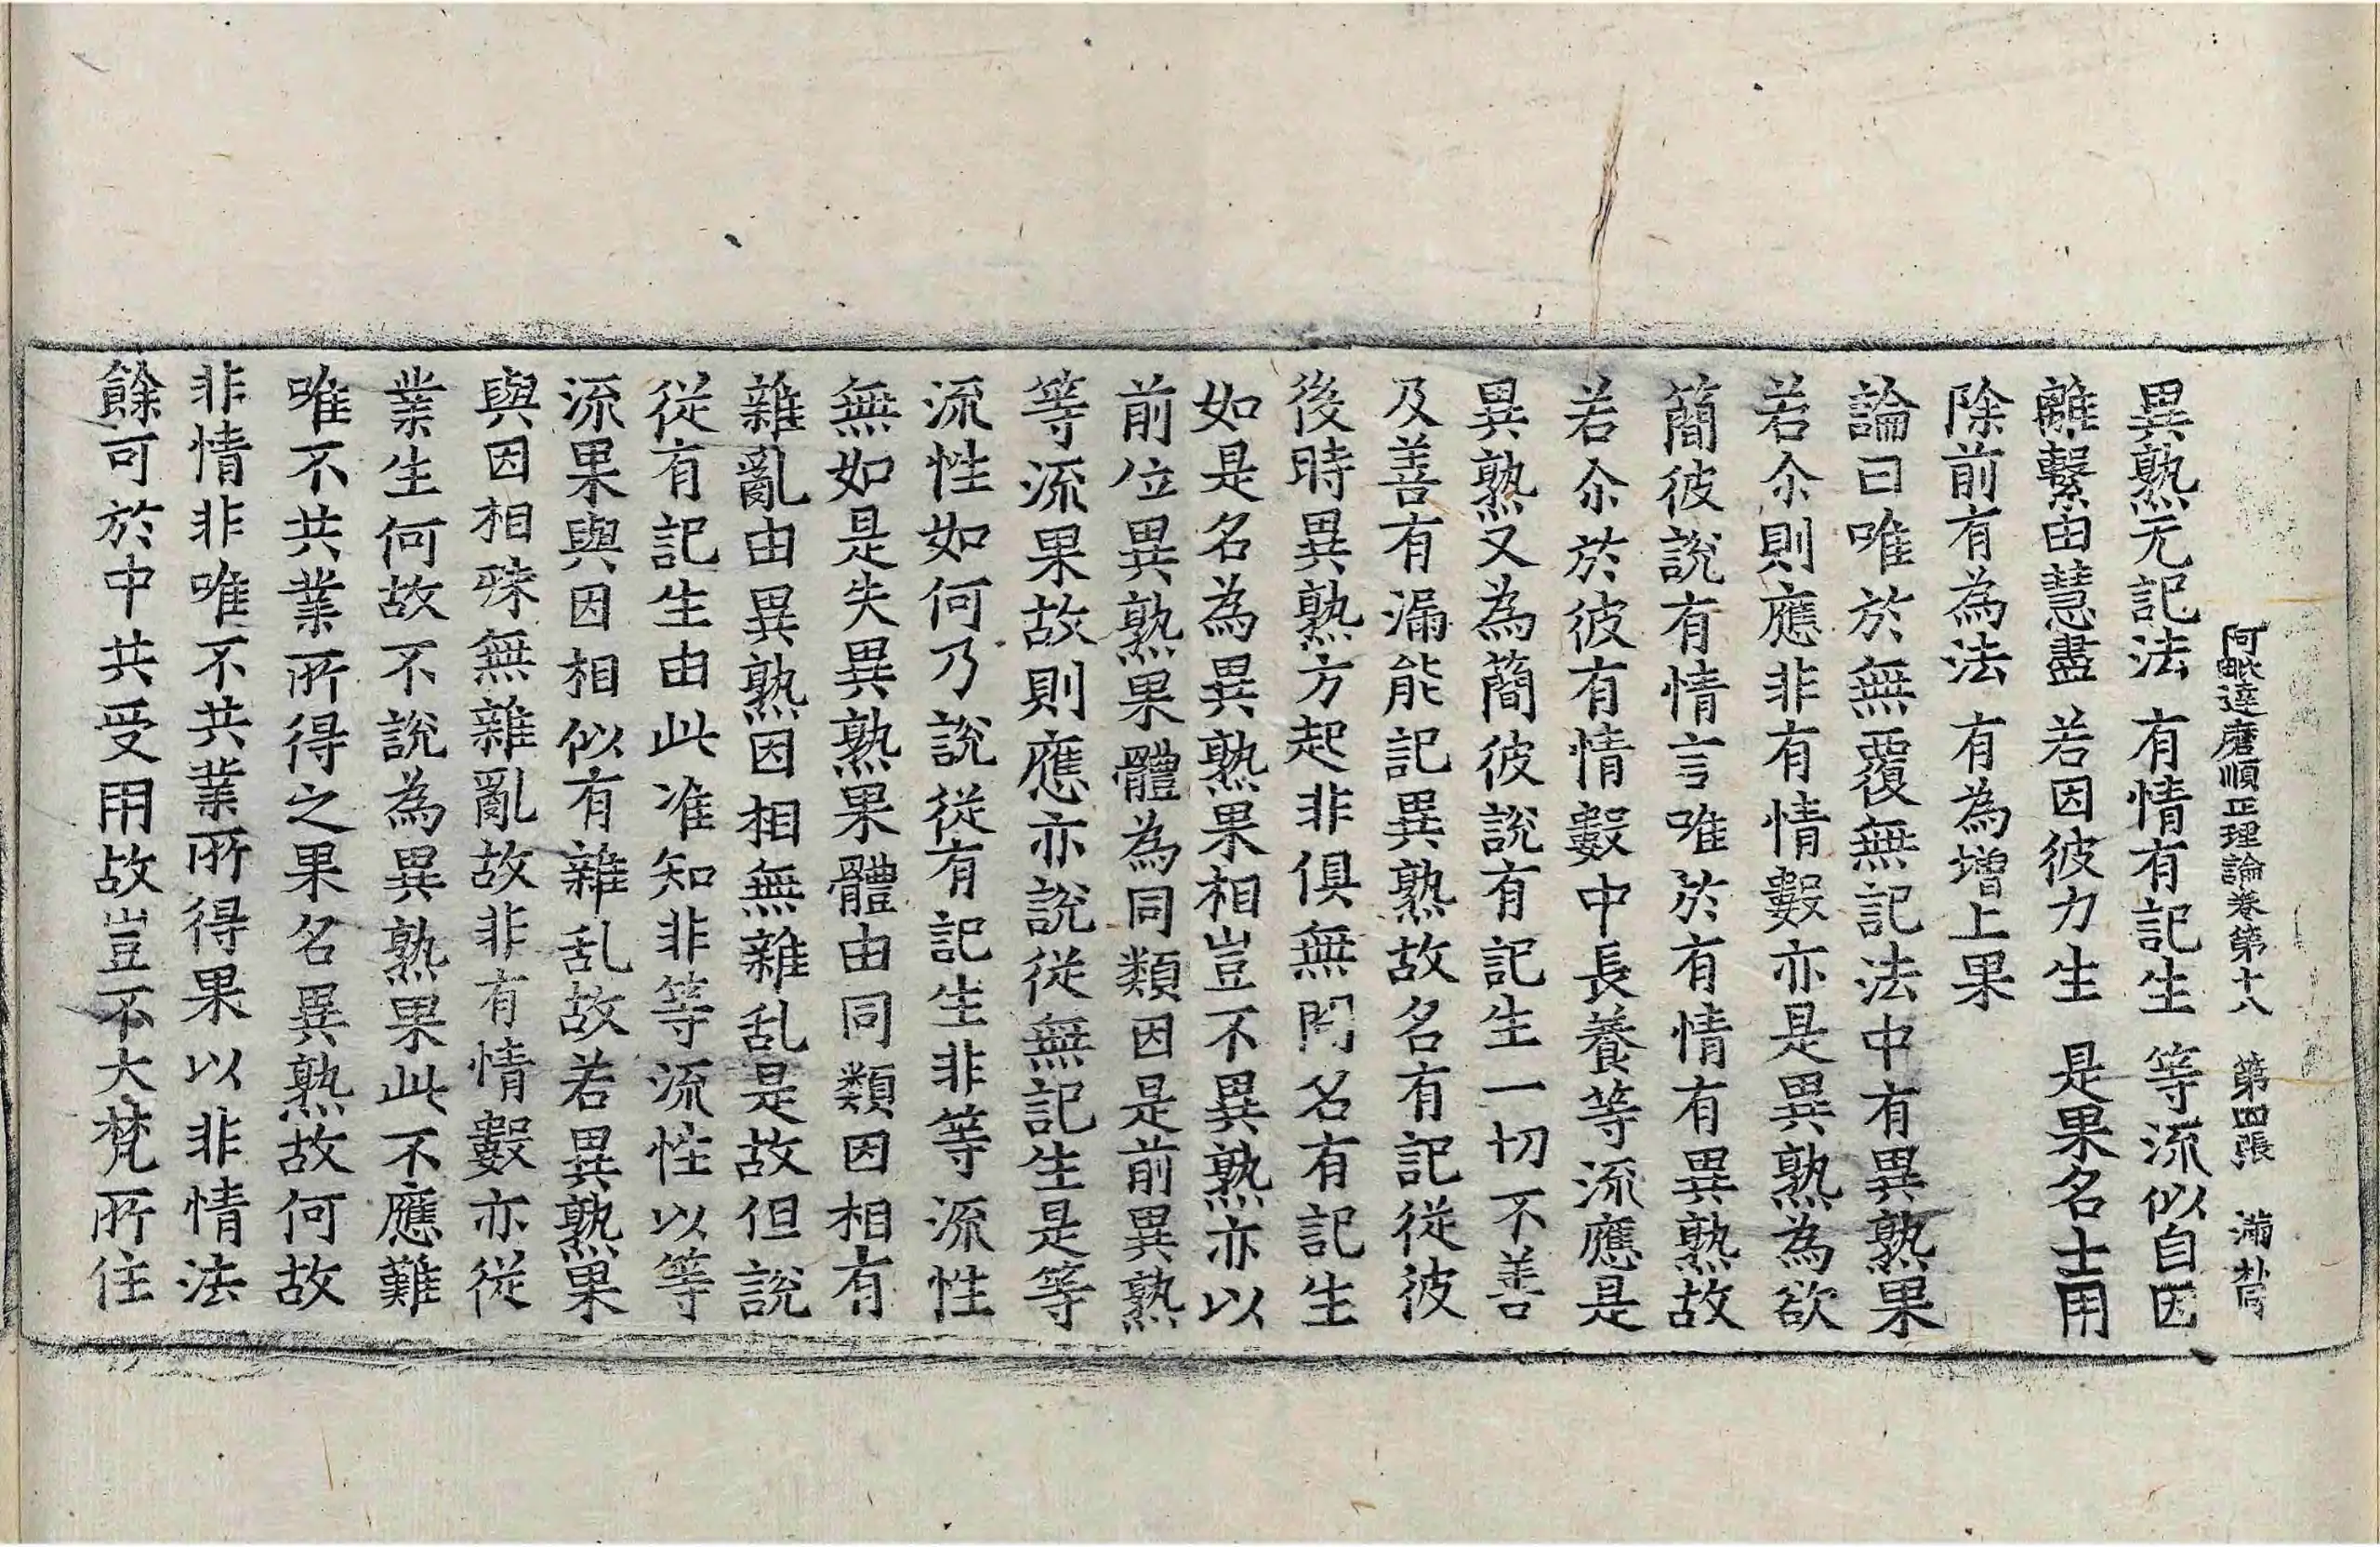 阿毗達磨順正理論卷第十八　第四張　滿
異熟无記法　有情有記生　等流似自因
離繫由慧盡　若因彼力生　是果名士用
除前有為法　有為增上果
論曰唯於無覆無記法中有異熟果
若尒則應非有情數亦是異熟為欲
簡彼說有情言唯於有情有異熟故
若尒於彼有情數中長養等流應是
異熟又為簡彼說有記生一切不善
及善有漏能記異熟故名有記從彼
後時異熟方起非俱無間名有記生
如是名為異熟果相豈不異熟亦以
前位異熟果體為同類因是前異熟
等流果故則應亦說從無記生是等
流性如何乃說從有記生非等流性
無如是失異熟果體由同類因相有
雜亂由異熟因相無雜乱是故但說
從有記生由此准知非等流性以等
流果與因相似有雜乱故若異熟果
與因相殊無雜亂故非有情數亦從
業生何故不說為異熟果此不應難
唯不共業所得之果名異熟故何故
非情非唯不共業所得果以非情法
餘可於中共受用故豈不大梵所住